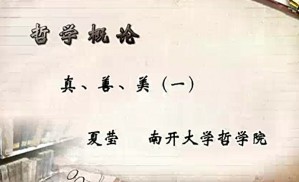 哲学概论
真、善、美（一）
夏莹 南开大学哲学院